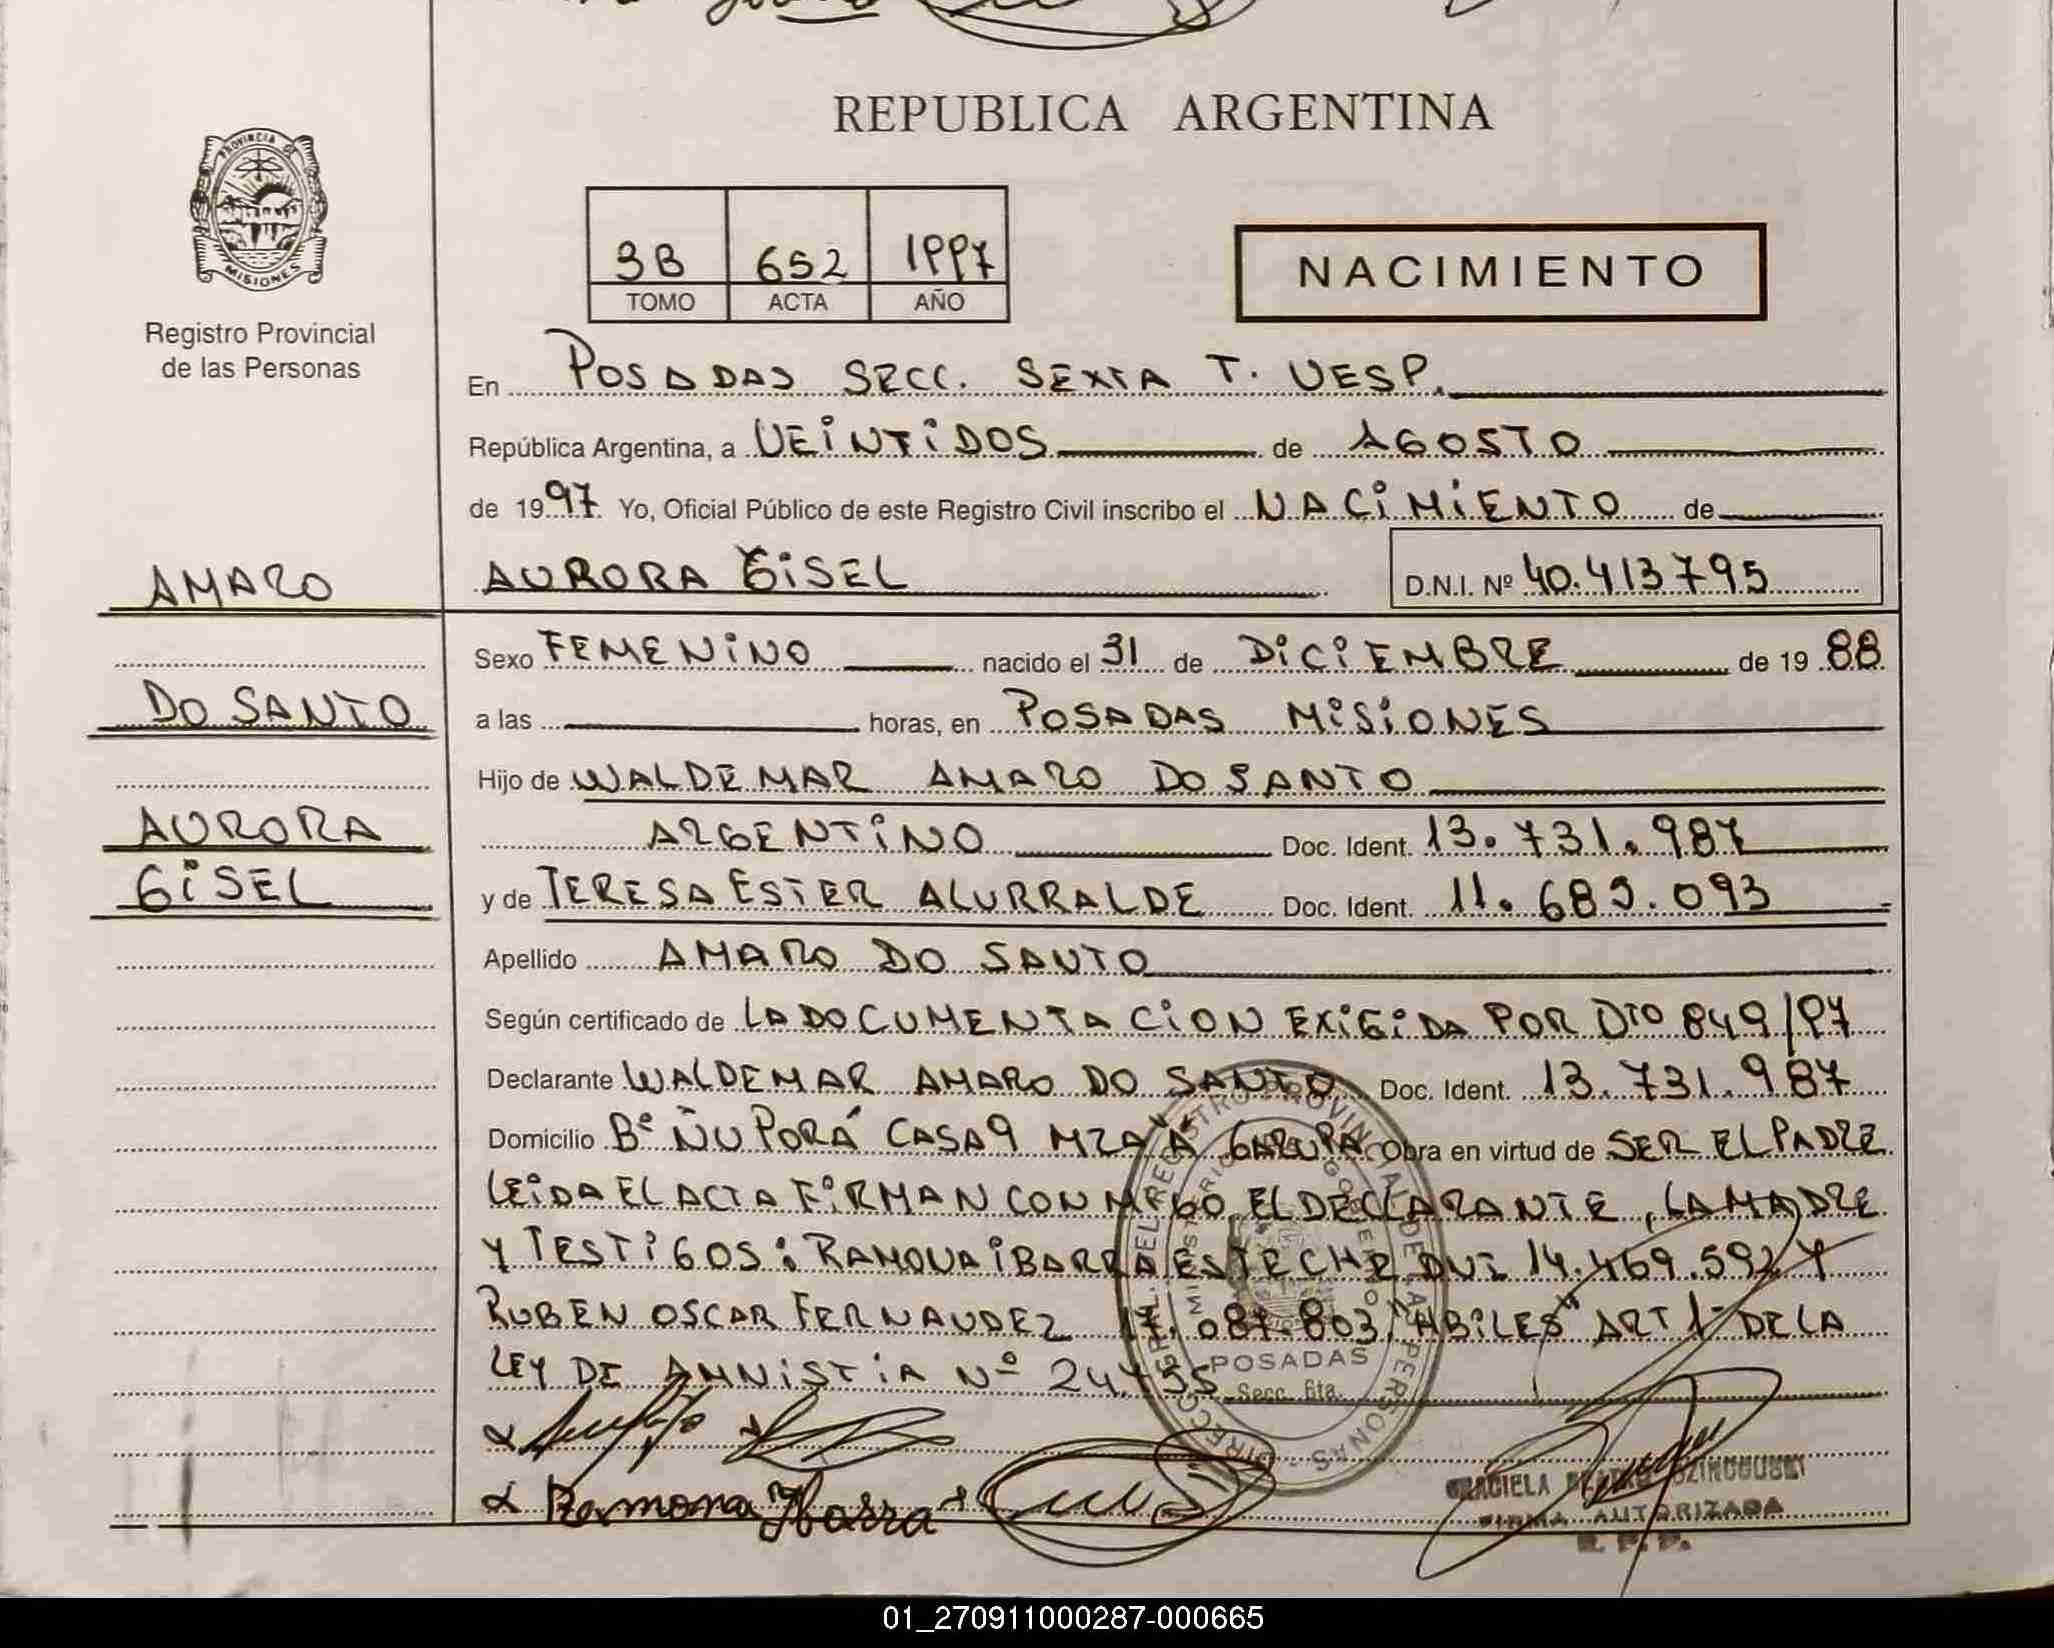 REPUBLICA ARGENTINA
PROVINCIA DE
MISIONES
Registro Provincial
de las Personas
3B 652 1997
TOMO ACTA AÑO
NACIMIENTO
En POSADAS SECC. SEXTA T. VESP.
República Argentina, a VEINTIDOS de AGOSTO
de 1997 Yo, Oficial Público de este Registro Civil inscribo el NACIMIENTO de
AURORA GISEL D.N.I. Nº 40.413795
AMARO
DO SANTO
AURORA
GISEL
Sexo FEMENINO nacido el 31 de DICIEMBRE de 1988
a las horas, en POSADAS MISIONES
Hijo de WALDEMAR AMARO DO SANTO
ARGENTINO Doc. Ident. 13.731.987
y de TERESA ESTER ALURRALDE Doc. Ident. 11.689.093
Apellido AMARO DO SANTO
Según certificado de LA DOCUMENTACION EXIGIDA POR DTO 849/97
Declarante WALDEMAR AMARO DO SANTO Doc. Ident. 13.731.987
Domicilio Bº ÑU PORÁ CASA 9 MZA "A" GARUPA Obra en virtud de SER EL PADRE
LEIDA EL ACTA FIRMAN CONMIGO EL DECLARANTE, LA MADRE
Y TESTIGOS: RAMONA IBARRA ESTECHE DNI 14.469.592 Y
RUBEN OSCAR FERNANDEZ 17.087.803, HABILES" ART 1º DE LA
LEY DE AMNISTIA Nº 24.755
POSADAS
Secc. 6ta.
Ramona Ibarra
GRACIELA
FIRMA AUTORIZADA
R. P. P.
01_270911000287-000665